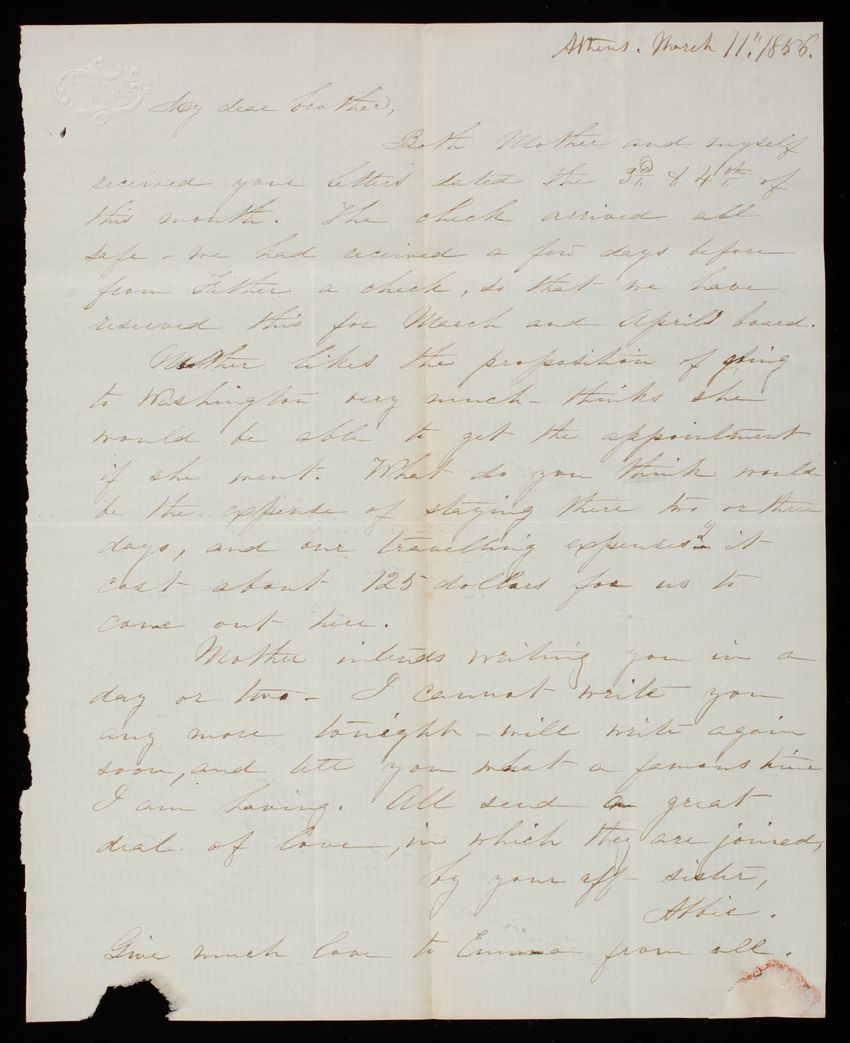 Athens. March 11." 1856.
My dear brother,
Both Mother and myself
received your letters dated the 3d & 4th of
this month. The check arrived all
safe - we had received a few days before
from Father a check, so that we have
reserved this for March and April's board.
Mother likes the proposition of going
to Washington very much - thinks she
would be able to get the appointment
if she went. What do you think would
be the expense of staying there two or three
days, and our travelling expenses? it
cost about 125 dollars for us to
come out here.
Mother intends writing you in a
day or two - I cannot write you
any more tonight - will write again
soon, and tell you what a famous time
I am having. All send a great
deal of love, in which they are joined,
by your aff sister,
Abbie.
Give much love to Emma from all.